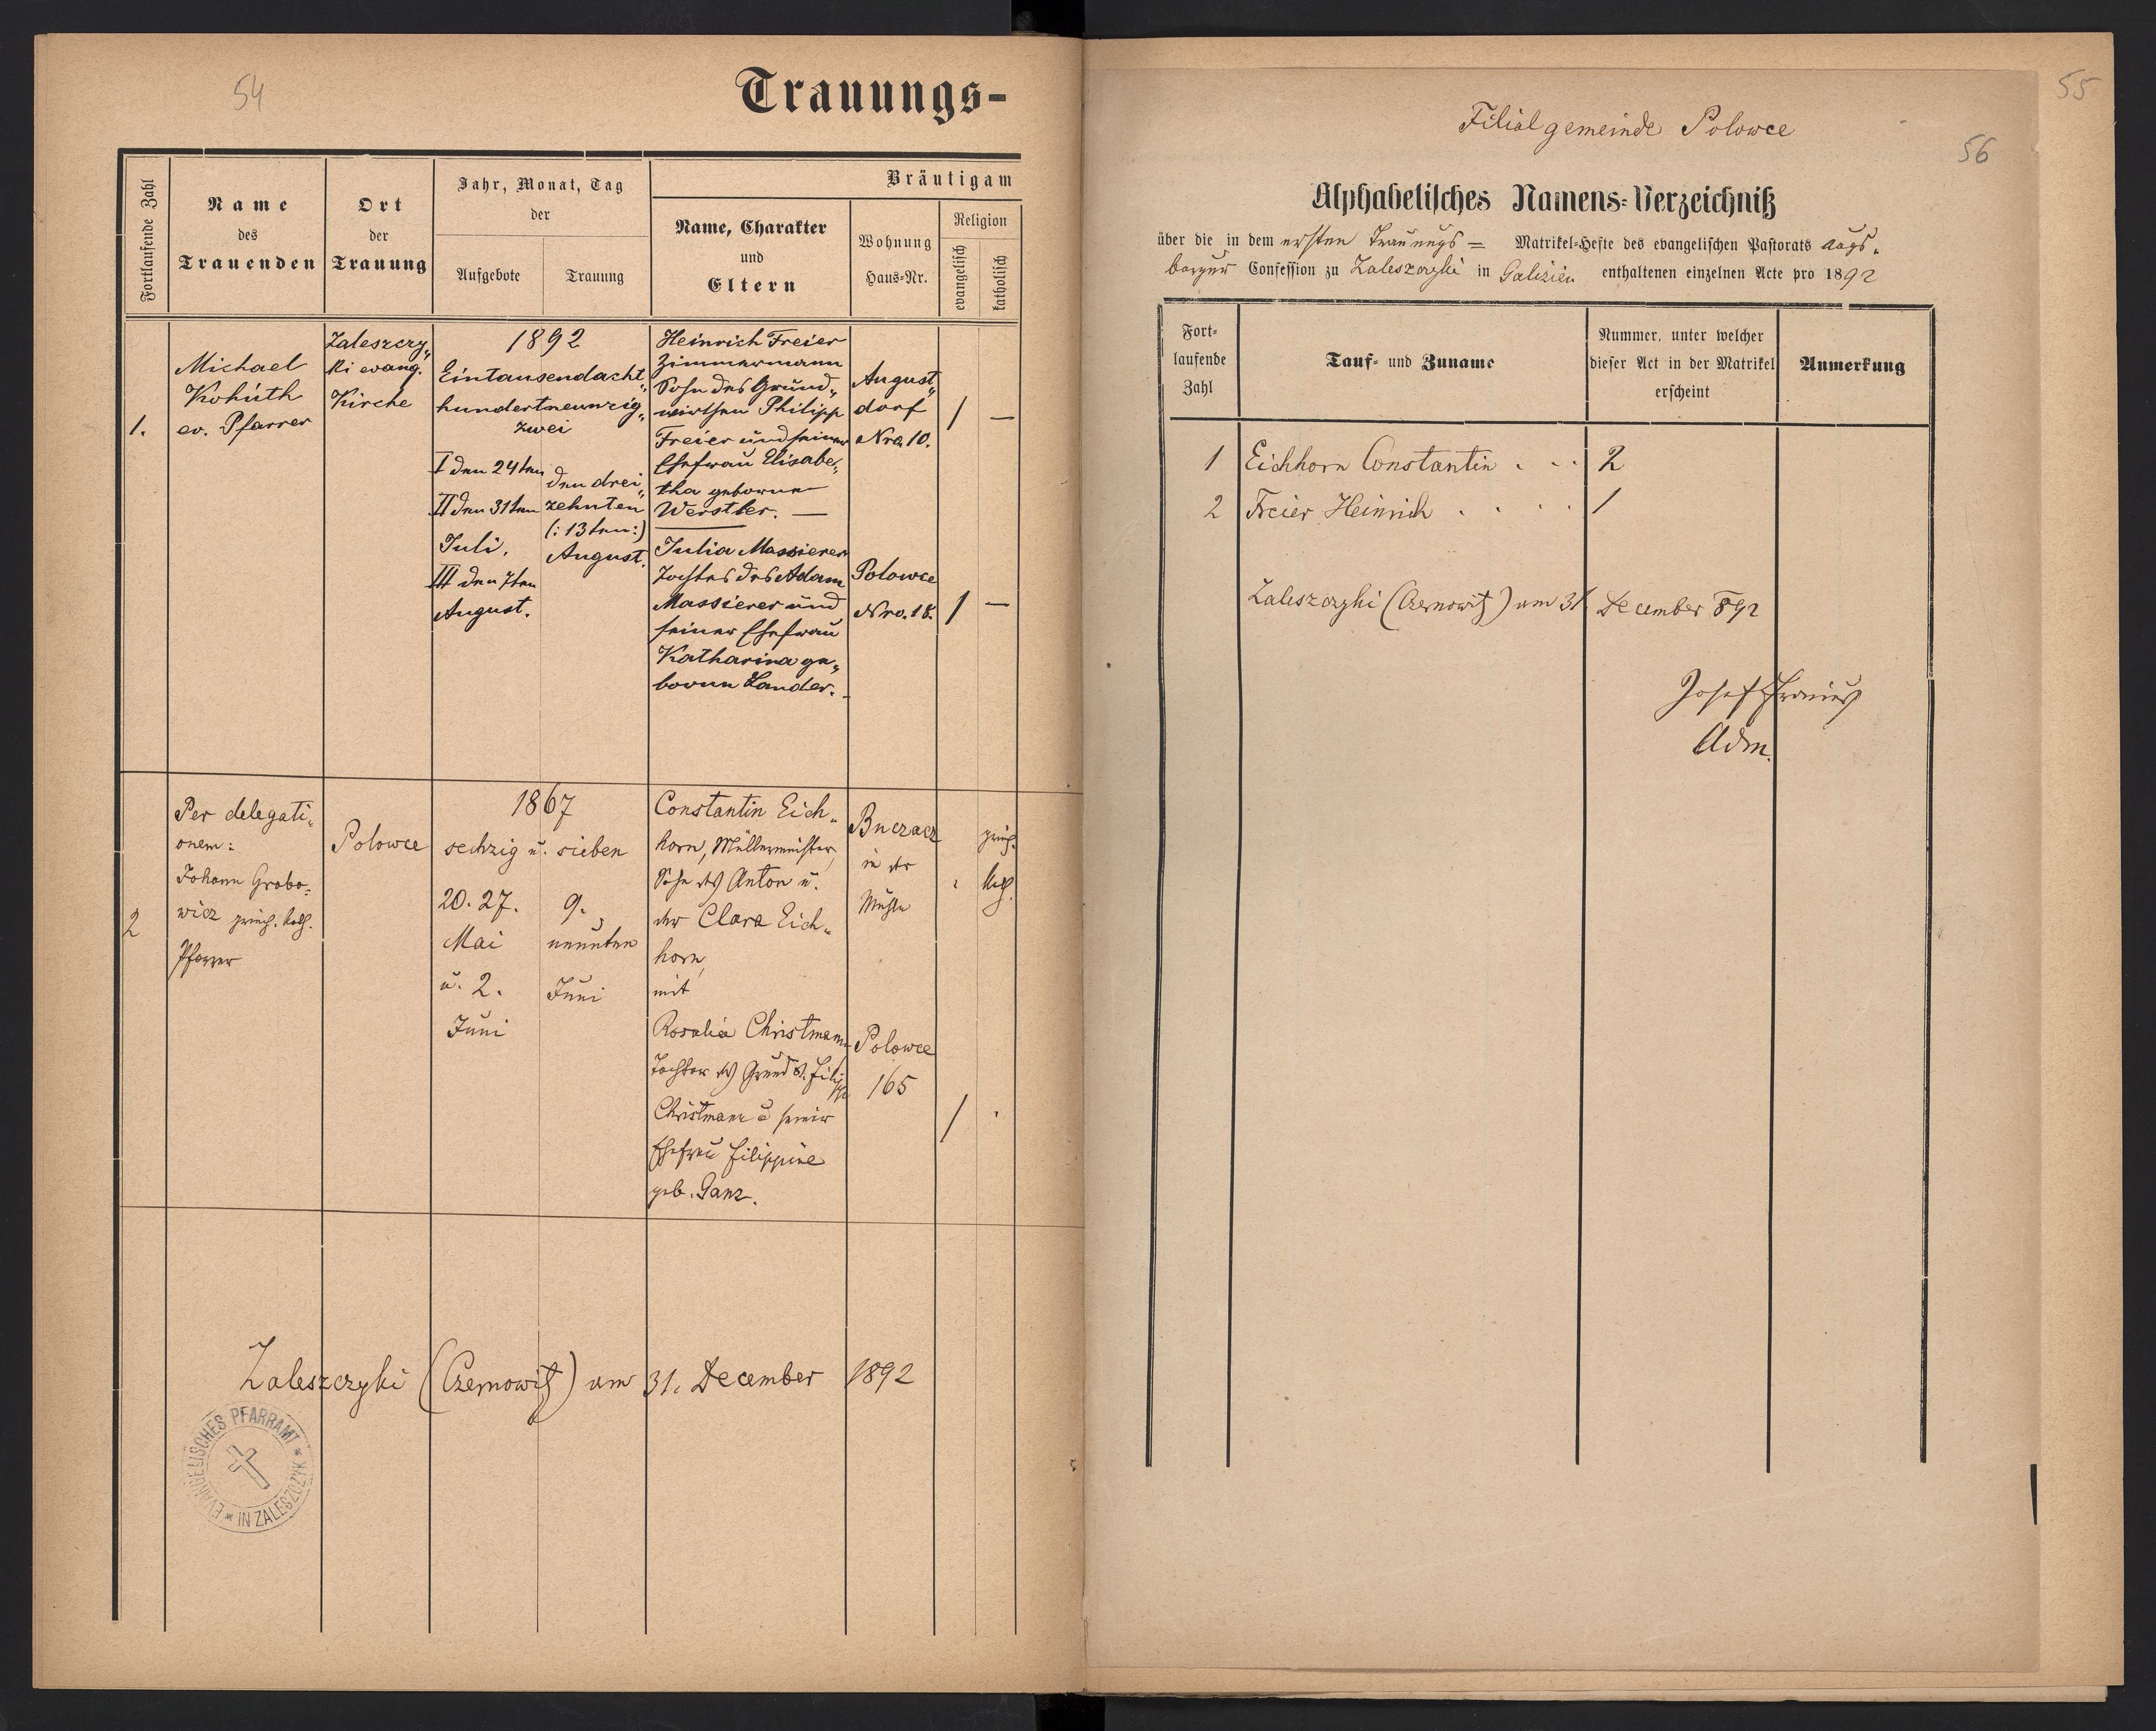 54
Trauungs-
Fortlaufende Zahl
Name
des
Trauenden
Ort
der
Trauung
Jahr, Monat, Tag
der
Aufgebote
Trauung
Bräutigam
Name, Charakter
und
Eltern
Wohnung
Haus-Nr.
Religion
evangelisch
katholisch
1.
Michael
Kohúth
ev. Pfarrer
Zaleszczy„
ki evang.
Kirche
1892
Eintausendacht„
hundertneunzig„
zwei
I den 24ten
II den 31ten
Juli.
III den 7ten
August.
den drei„
zehnten
(: 13ten :)
August.
Heinrich Freier
Zimmermann
Sohn des Grund„
wirthen Philipp
Freier und seiner
Ehefrau Elisabe„
tha geborne
Werstler. —
Julia Massierer
Tochter des Adam
Massierer und
seiner Ehefrau
Katharina ge„
boren Lander. –
August„
dorf
Nro. 10.
Polowce
Nro. 18.
1 —
1 —
2
Per delegati„
onem:
Johann Grabo„
wicz griech. kath.
Pfarrer
Polowce
1867
sechzig u. sieben
20. 27.
Mai
u. 2.
Juni
9.
neunten
Juni
Constantin Eich„
horn, Müllermeister,
Sohn des Anton u.
der Clara Eich„
horn,
mit
Rosalia Christmann
Tochter des Grundw. Filipp
Christmann u seiner
Ehefrau Filippine
geb. Ganz.
Buczacz
in der
Mühle
Polowce
165
griech.
kath.
/
Zaleszczyki (Czernowitz) am 31. December 1892
EVANGELISCHES PFARRAMT * IN ZALESZCZYK *
55
56
Filialgemeinde Polowce
Alphabetisches Namens-Verzeichniß
über die in dem ersten Trauungs = Matrikel-Hefte des evangelischen Pastorats augs„
burger Confession zu Zaleszczyki in Galizien enthaltenen einzelnen Acte pro 1892
Fort-
laufende
Zahl
Tauf- und Zuname
Nummer, unter welcher
dieser Act in der Matrikel
erscheint
Anmerkung
1 Eichhorn Constantin . . . 2
2 Freier Heinrich . . . . 1
Zaleszczyki (Czernowitz) am 31 December 892
Josef
Adm.